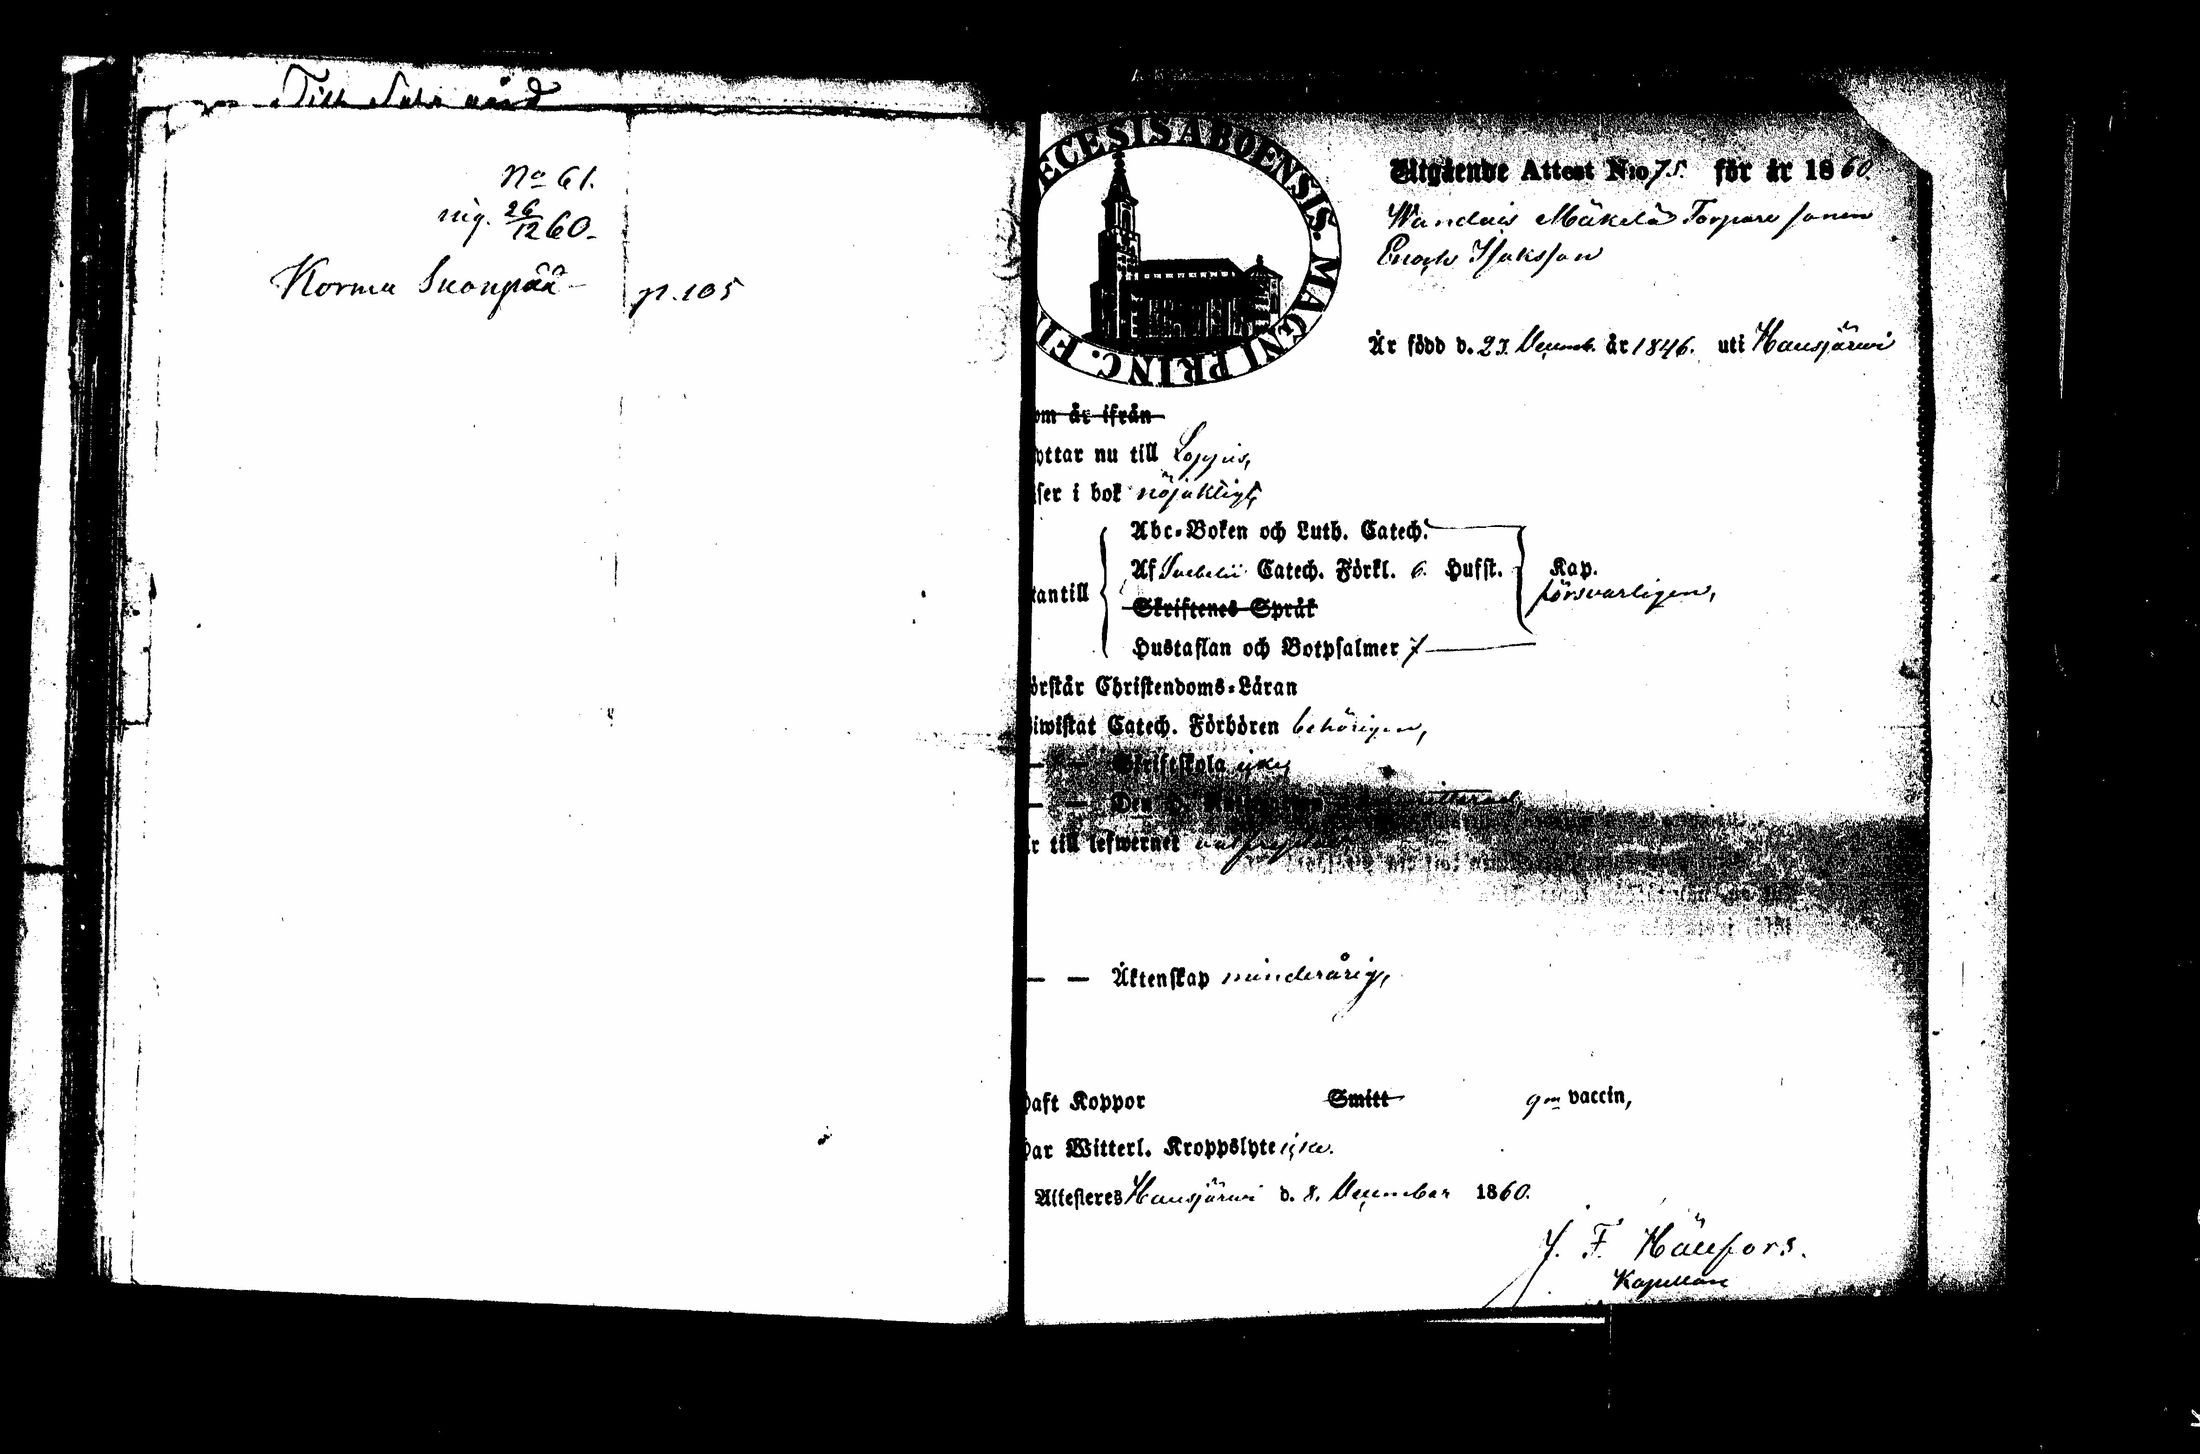 Till
No 61.
26/12 60.
Korma Suonpää p. 105
ECESIS ABOENSIS. MAGNI PRINC. FI
Utgående Attest N:o 75. för år 1860
Wandais Mäkelä Torpare sonen
Enoch Isaksson
Är född d. 23. Decemb. år 1846. uti Hausjärwi
om är ifrån
yttar nu till Loppis,
äser i bok nöjaktigt,
Abc-Boken och Luth. Catech.
Af Svebelii Catech. Förkl. 6. Hufst. Kap.
tantill försvarligen,
Skriftenes Språk
Hustaflan och Botpsalmer 7
örstår Christendoms-Läran
iwistat Catech. Förhören behörigen,
— „ — Skriftskola icke,
— — Den H.
r till lefwernet välfrejdad,
— — Äktenskap minderårig,
haft Koppor Smitt gm vaccin,
har Witterl. Kroppslyte icke.
Attesteres Hausjärwi d. 8. December 1860.
J. F. Hällfors.
Kapellan